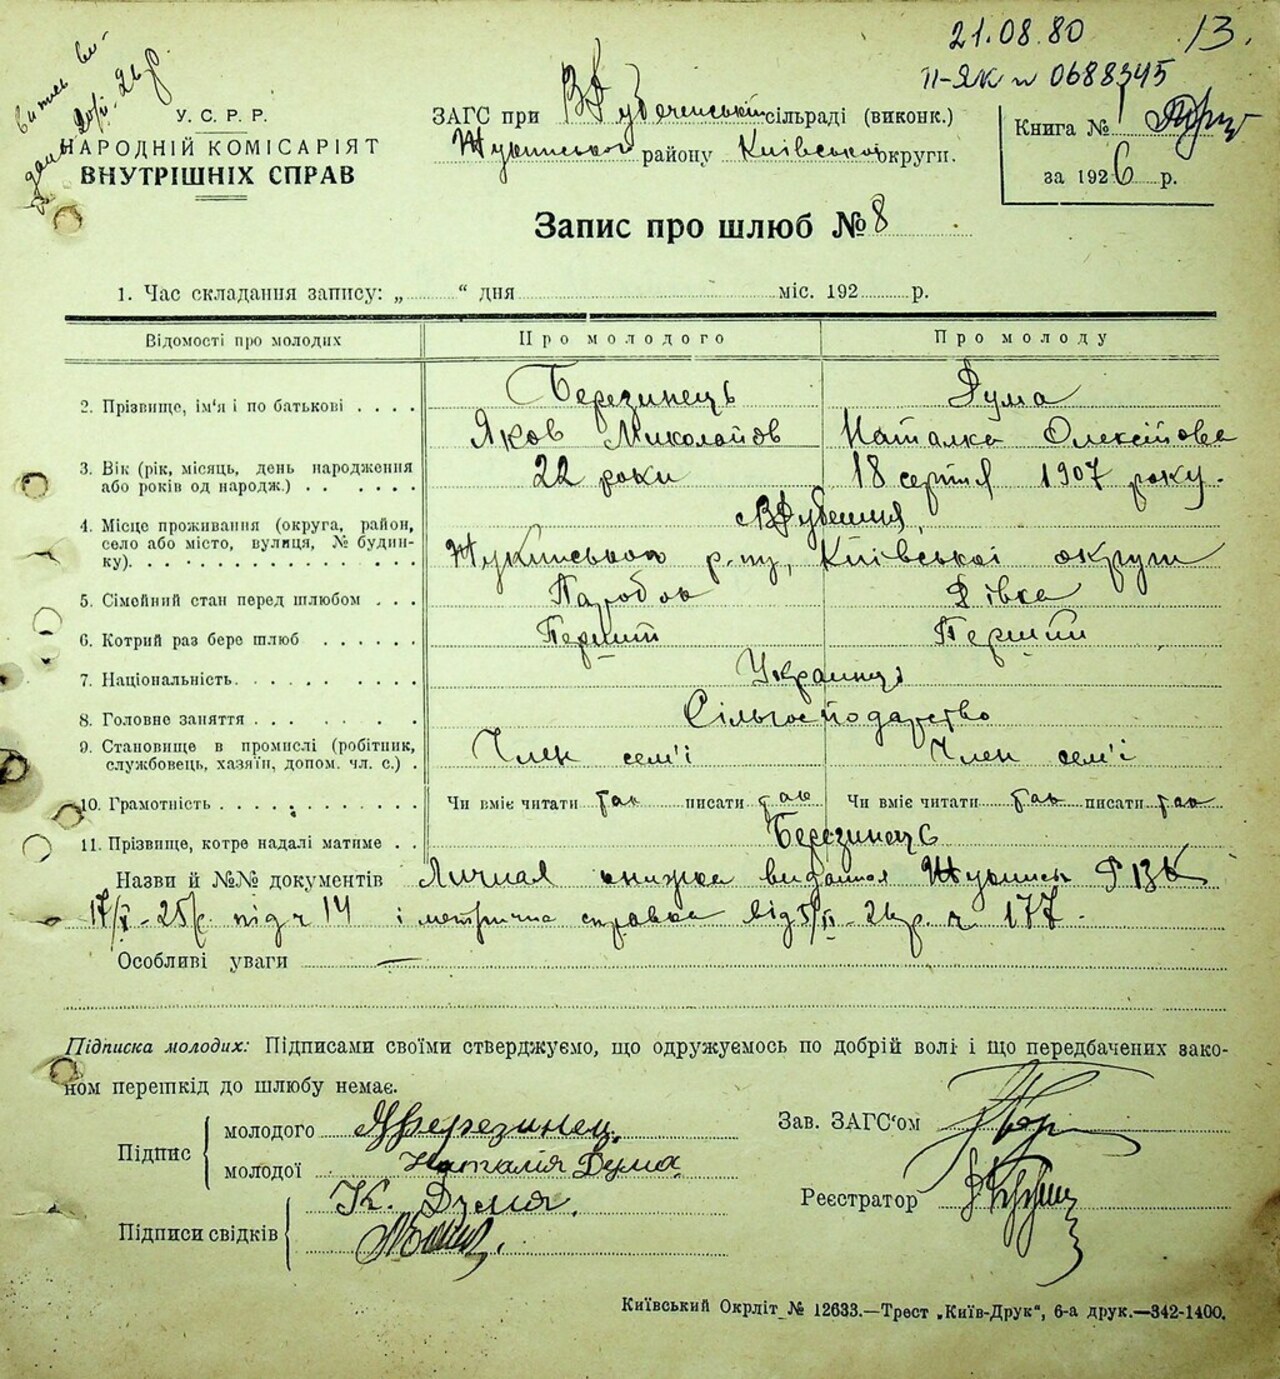 21.08.80
13.
II-ЯК № 0688345
У. С. Р. Р.
НАРОДНІЙ КОМІСАРІЯТ
ВНУТРІШНІХ СПРАВ
ЗАГС при сільраді (виконк.)
району Київської округи.
Книга №
за 1926 р.
Запис про шлюб № 8
1. Час складання запису: „ “ дня міс. 192 р.
Відомості про молодих Про молодого Про молоду
2. Прізвище, ім'я і по батькові Березинець Дума
Яков Миколайов Наталка Олексійова
3. Вік (рік, місяць, день народження або років од народж.) 22 роки 18 серпня 1907 року.
4. Місце проживання (округа, район,
село або місто, вулиця, № будин-
ку) Жукинського р-ну, Київської округи
5. Сімейний стан перед шлюбом Парубок Дівка
6. Котрий раз бере шлюб Перший Перший
7. Національність Украинці
8. Головне заняття Сільгосподарство
9. Становище в промислі (робітник,
службовець, хазяїн, допом. чл. с.) Член сем'ї Член сем'ї
10. Грамотність Чи вміє читати так писати так Чи вміє читати так писати так
11. Прізвище, котре надалі матиме Березинець
Назви й №№ документів Личная книжка видання
17/X-25р. під ч 14 і метрична справка від 5/II-26р. ч. 177.
Особливі уваги —
Підписка молодих: Підписами своїми стверджуємо, що одружуємось по добрій волі і що передбачених зако-
ном перешкід до шлюбу немає.
Підпис молодого ЯБерезинец.
молодої Наталія Дума
Зав. ЗАГС'ом
Реєстратор
Підписи свідків К. Дума.
Київський Окрліт № 12633.—Трест „Київ-Друк“, 6-а друк.—342-1400.